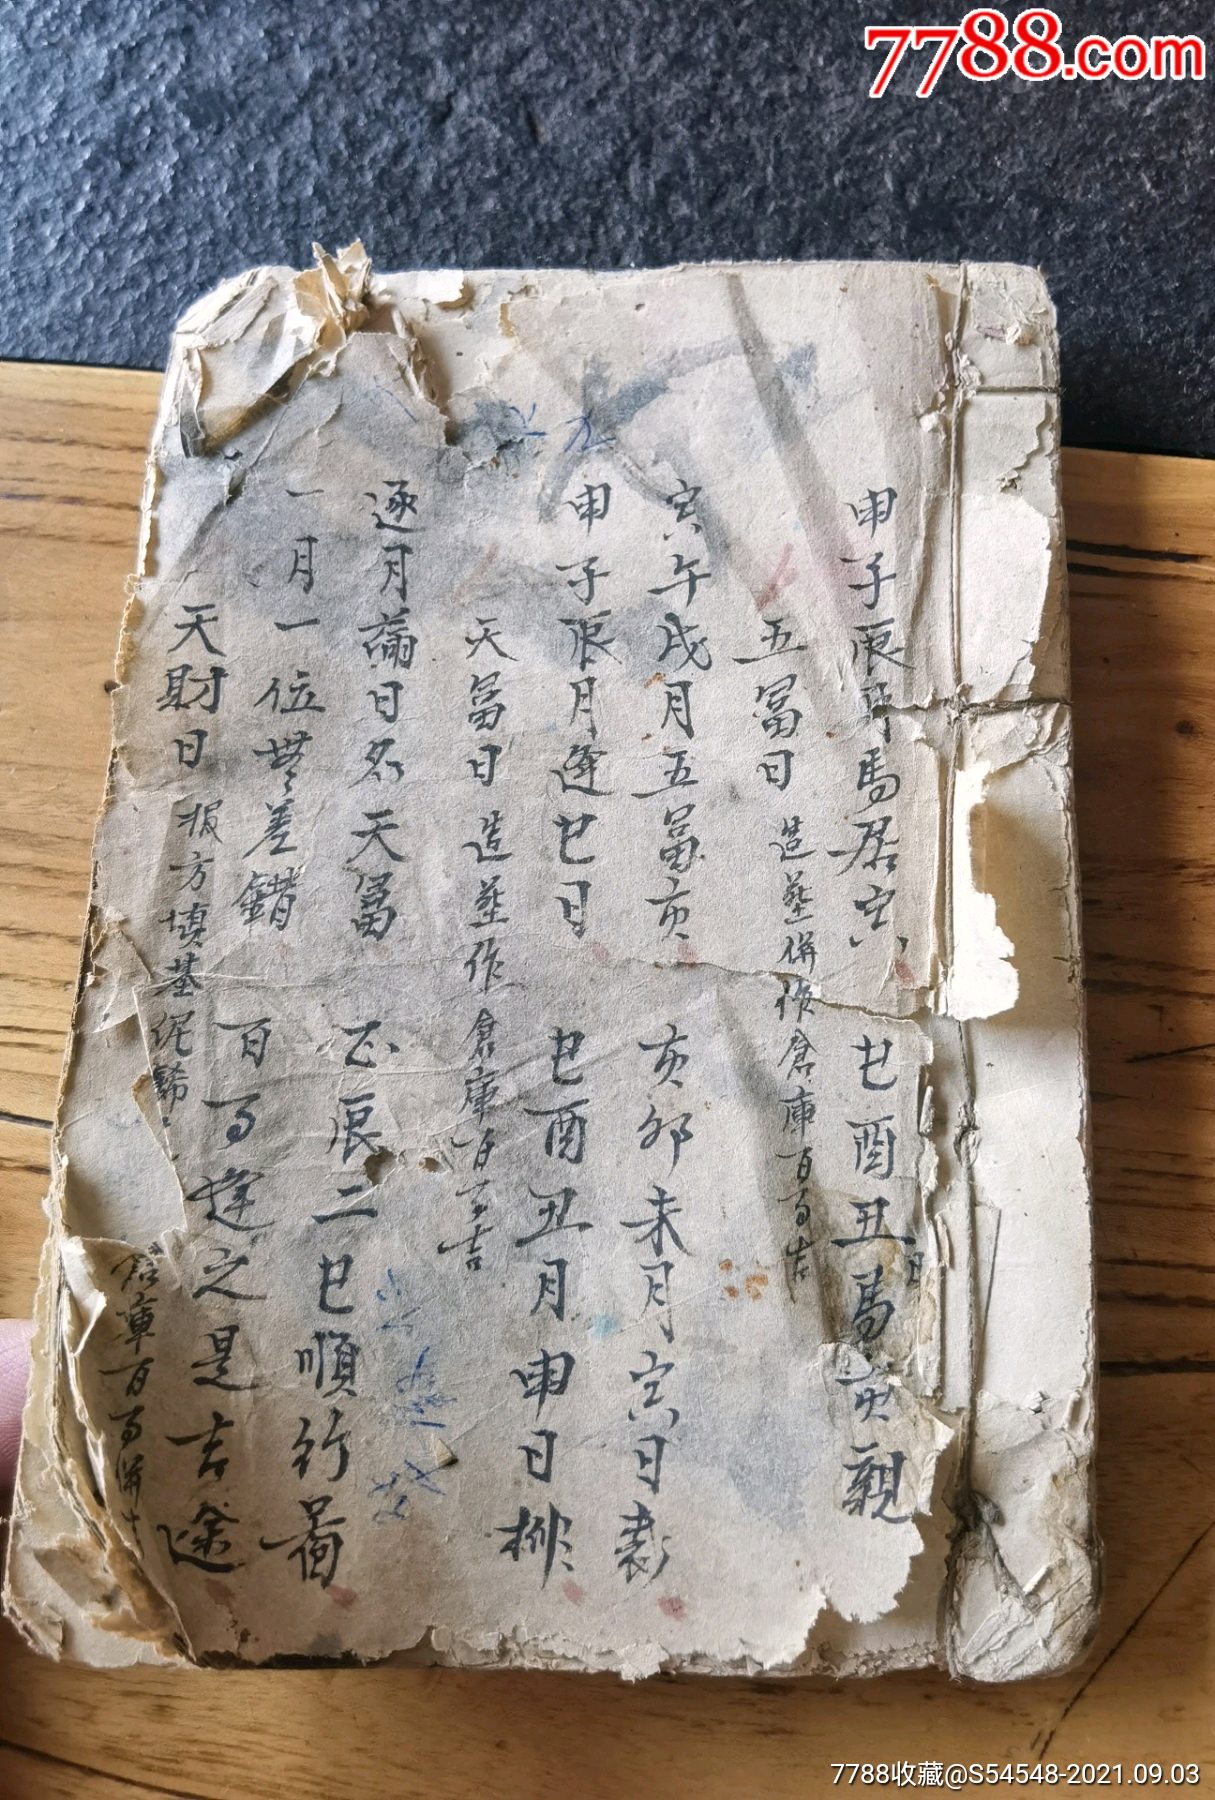 7788.com
申子辰月馬居寅 巳酉丑馬亥親
月
五富日 造葬併作倉庫百事吉
寅午戌月五富亥 亥卯未月寅日裁
申子辰月逢巳日 巳酉丑月申日排
天富日 造葬作倉庫百事吉
逐月滿日名天富 正辰二巳順行當
一月一位無差錯 百事逢之是吉途
天財日 方填基 倉庫百事併吉
7788收藏@S54548-2021.09.03